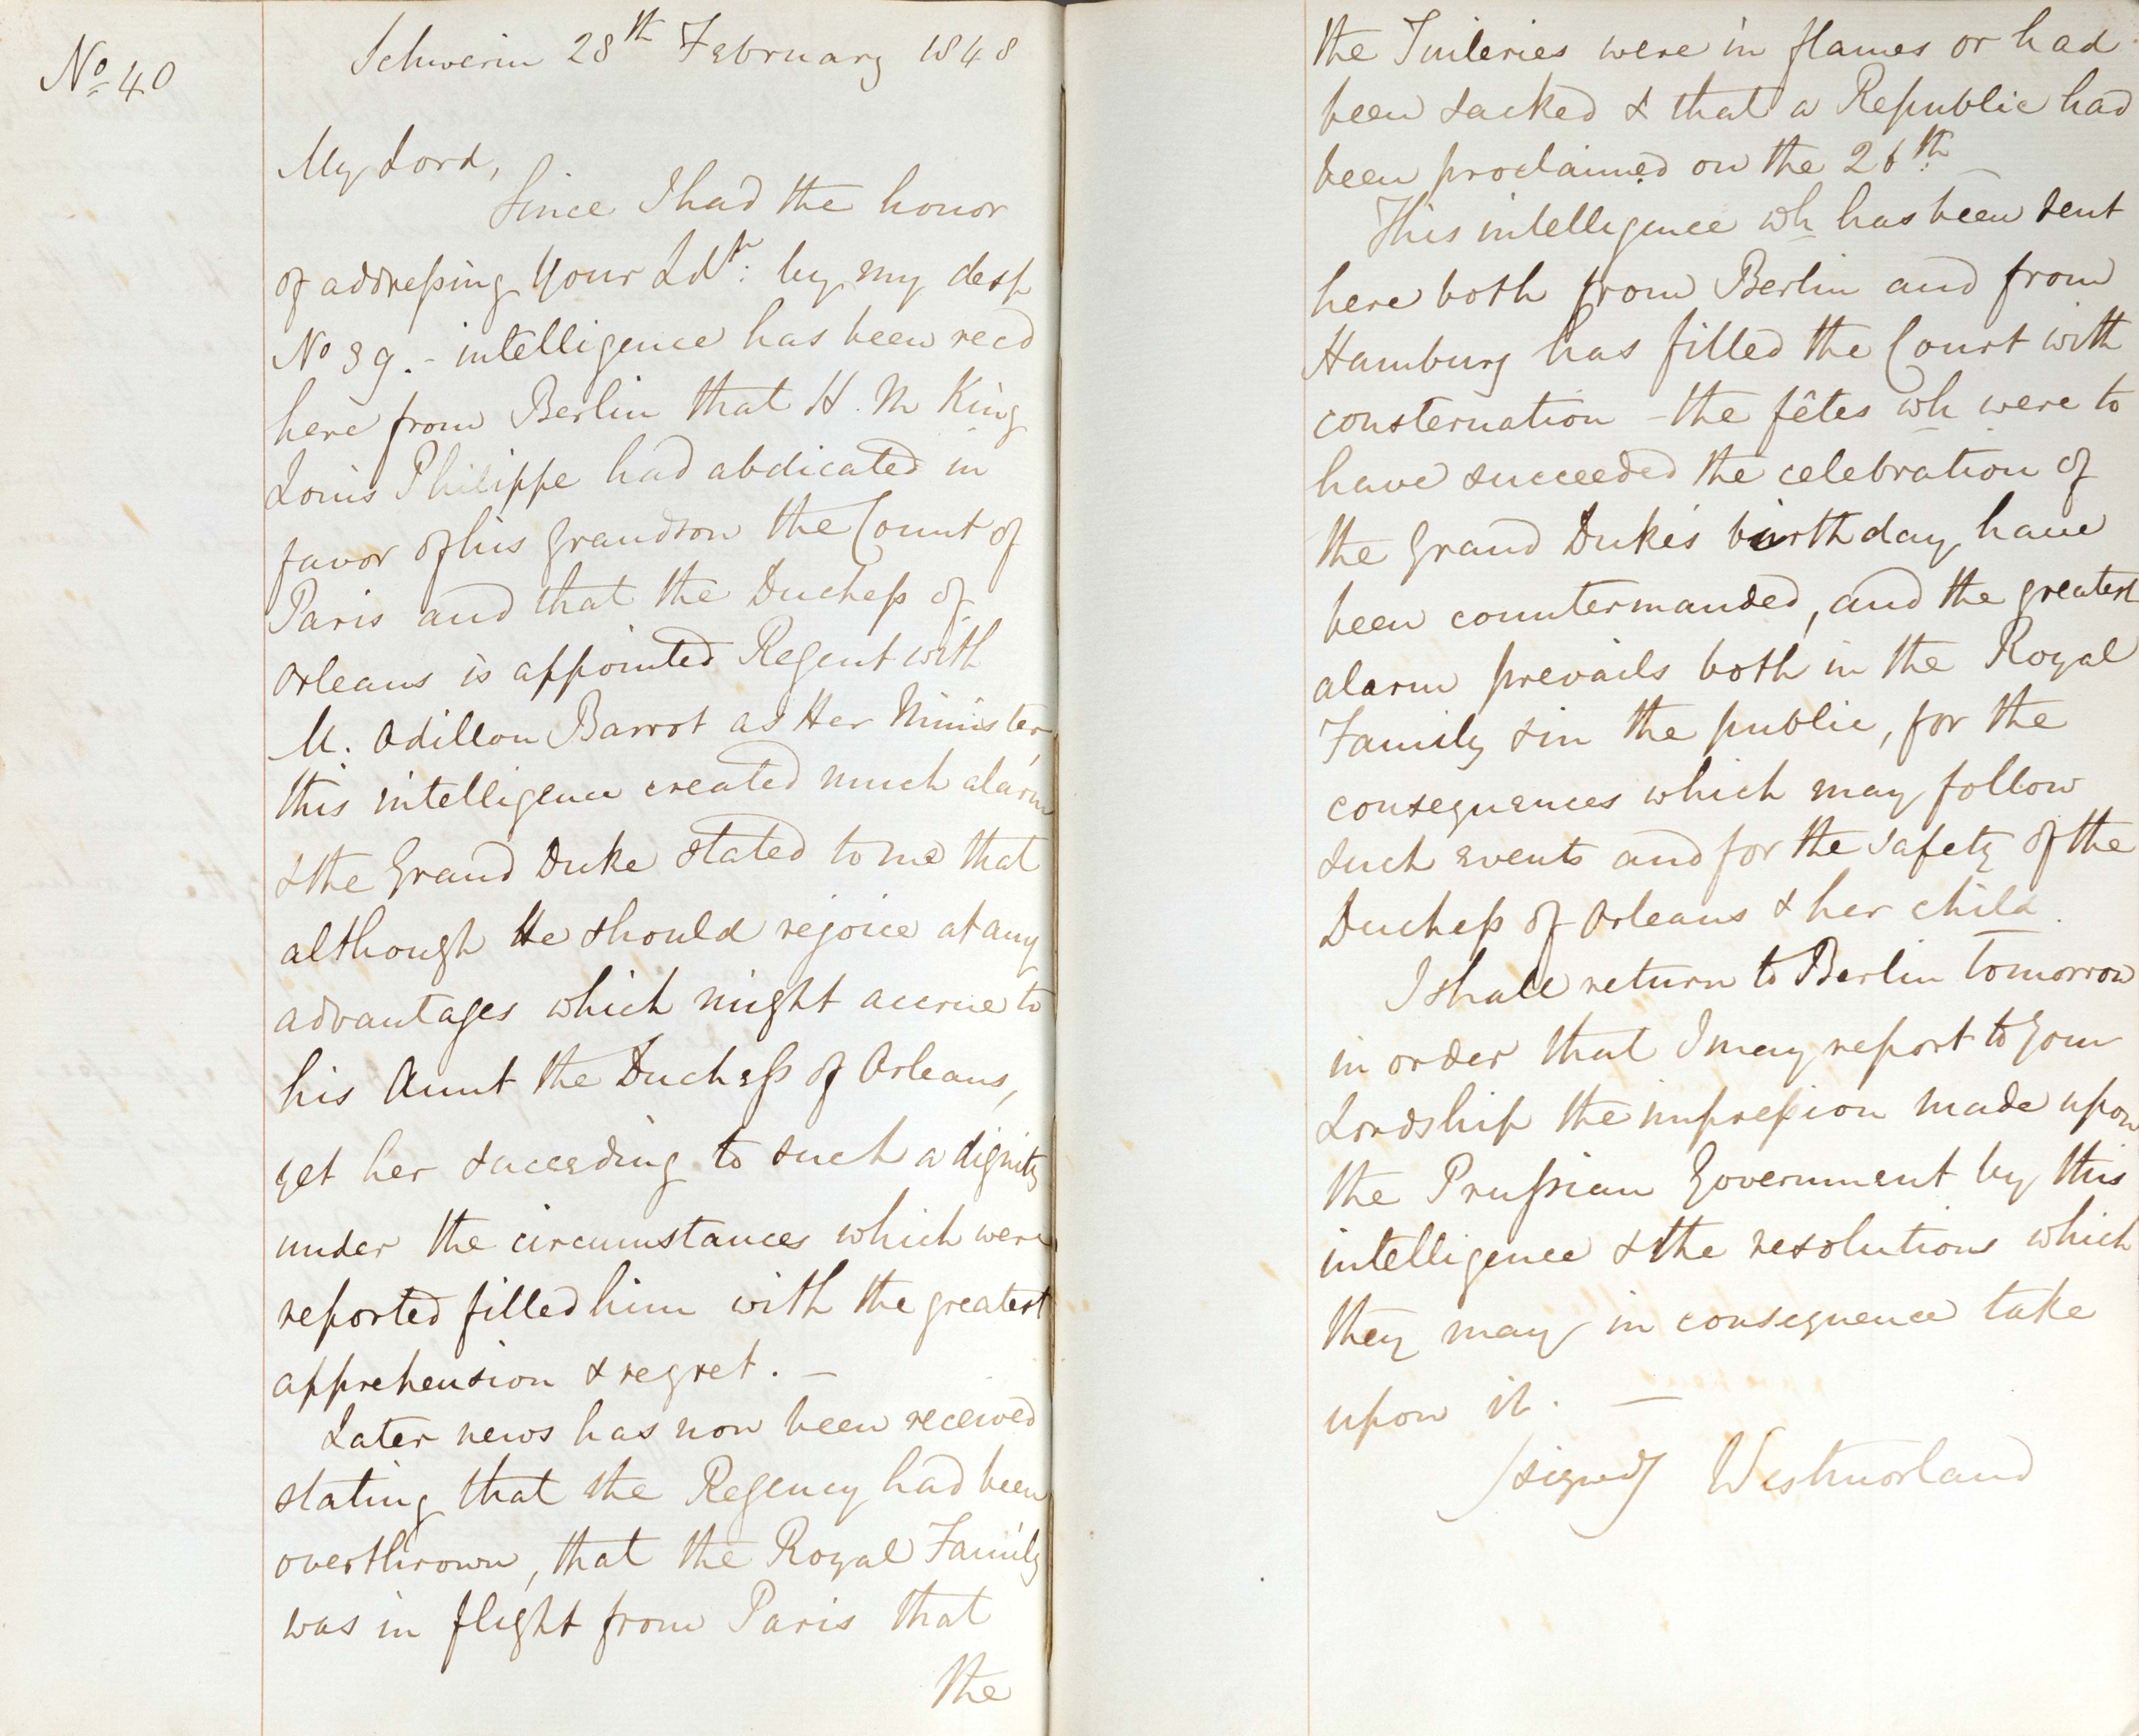 No 40
Schwerin 28th February 1848
My Lord,
Since I had the honor
of addressing Your Ldp: by my desp
No 39. - intelligence has been recd
here from Berlin that H. M King
Louis Philippe had abdicated in
favor of his grandson the Count of
Paris and that the Duchess of
Orleans is appointed Regent with
M. Odillon Barrot as Her Minister
this intelligence created much alarm
& the Grand Duke stated to me that
although He should rejoice at any
advantages which might accrue to
his Aunt the Duchess of Orleans,
yet her succeeding to such a dignity
under the circumstances which were
reported filled him with the greatest
apprehension & regret. —
Later news has now been received
stating that the Regency had been
overthrown, that the Royal Family
was in flight from Paris that
the
the Tuileries were in flames or had
been sacked & that a Republic had
been proclaimed on the 26th —
This intelligence wh has been sent
here both from Berlin and from
Hamburg has filled the Court with
consternation - the fêtes wh were to
have succeeded the celebration of
the Grand Duke's birthday have
been countermanded, and the greatest
alarm prevails both in the Royal
Family & in the public, for the
consequences which may follow
such events and for the safety of the
Duchess of Orleans & her child.
I shall return to Berlin tomorrow
in order that I may report to Your
Lordship the impression made upon
the Prussian Government by this
intelligence & the resolutions which
they may in consequence take
upon it. —
/signed/ Westmorland